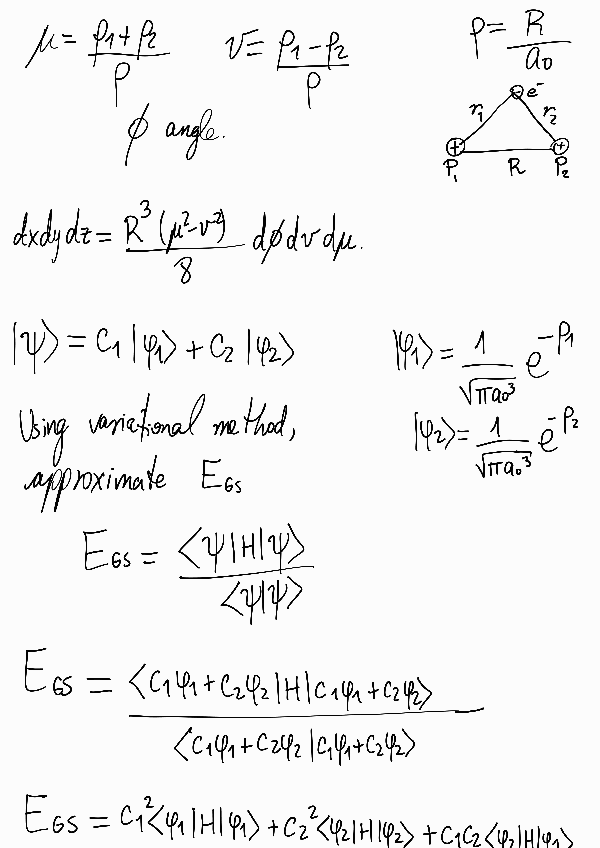 μ = (ρ1 + ρ2)/ρ    ν = (ρ1 - ρ2)/ρ    ρ = R/a0
φ angle.
e⁻
r1 r2
+ +
P1 R P2
dxdydz = R³(μ²-ν²)/8 dφdνdμ.
|ψ⟩ = C1|φ1⟩ + C2|φ2⟩    |φ1⟩ = 1/√(πa0³) e^(-ρ1)
Using variational method,    |φ2⟩ = 1/√(πa0³) e^(-ρ2)
approximate EGS
EGS = ⟨ψ|H|ψ⟩/⟨ψ|ψ⟩
EGS = ⟨C1φ1 + C2φ2|H|C1φ1 + C2φ2⟩/⟨C1φ1 + C2φ2|C1φ1 + C2φ2⟩
EGS = C1²⟨φ1|H|φ1⟩ + C2²⟨φ2|H|φ2⟩ + C1C2⟨φ2|H|φ1⟩